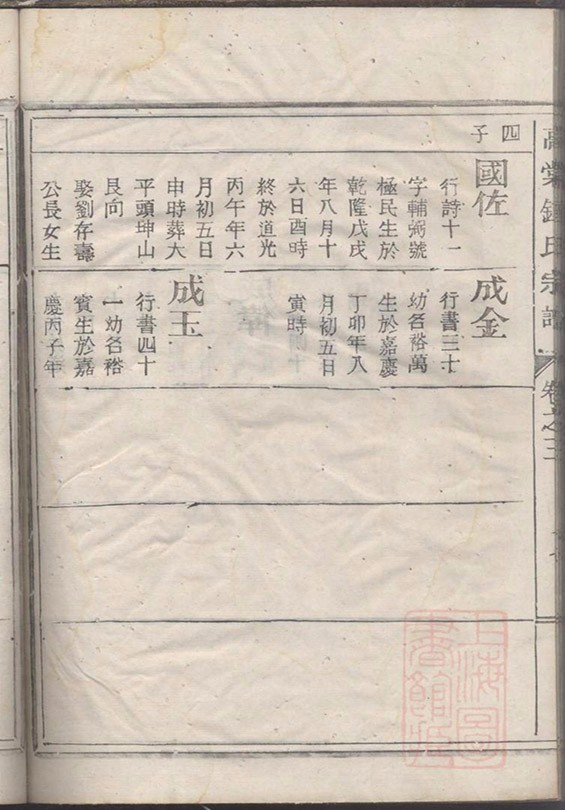 氏宗譜 卷之三
四子
國佐
行詩十一
字輔弼號
極民生於
乾隆戊戌
年八月十
六日酉時
終於道光
丙午年六
月初五日
申時葬大
平頭坤山
艮向
娶劉存壽
公長女生
成金
行書三十
幼名裕萬
生於嘉慶
丁卯年八
月初五日
寅時
成玉
行書四十
一幼名裕
賓生於嘉
慶丙子年
上海圖書館藏